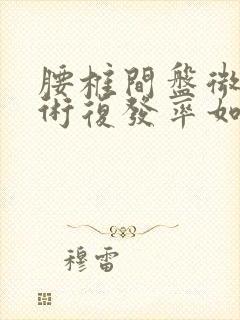 腰椎間盤微
術復發率如
穆雷